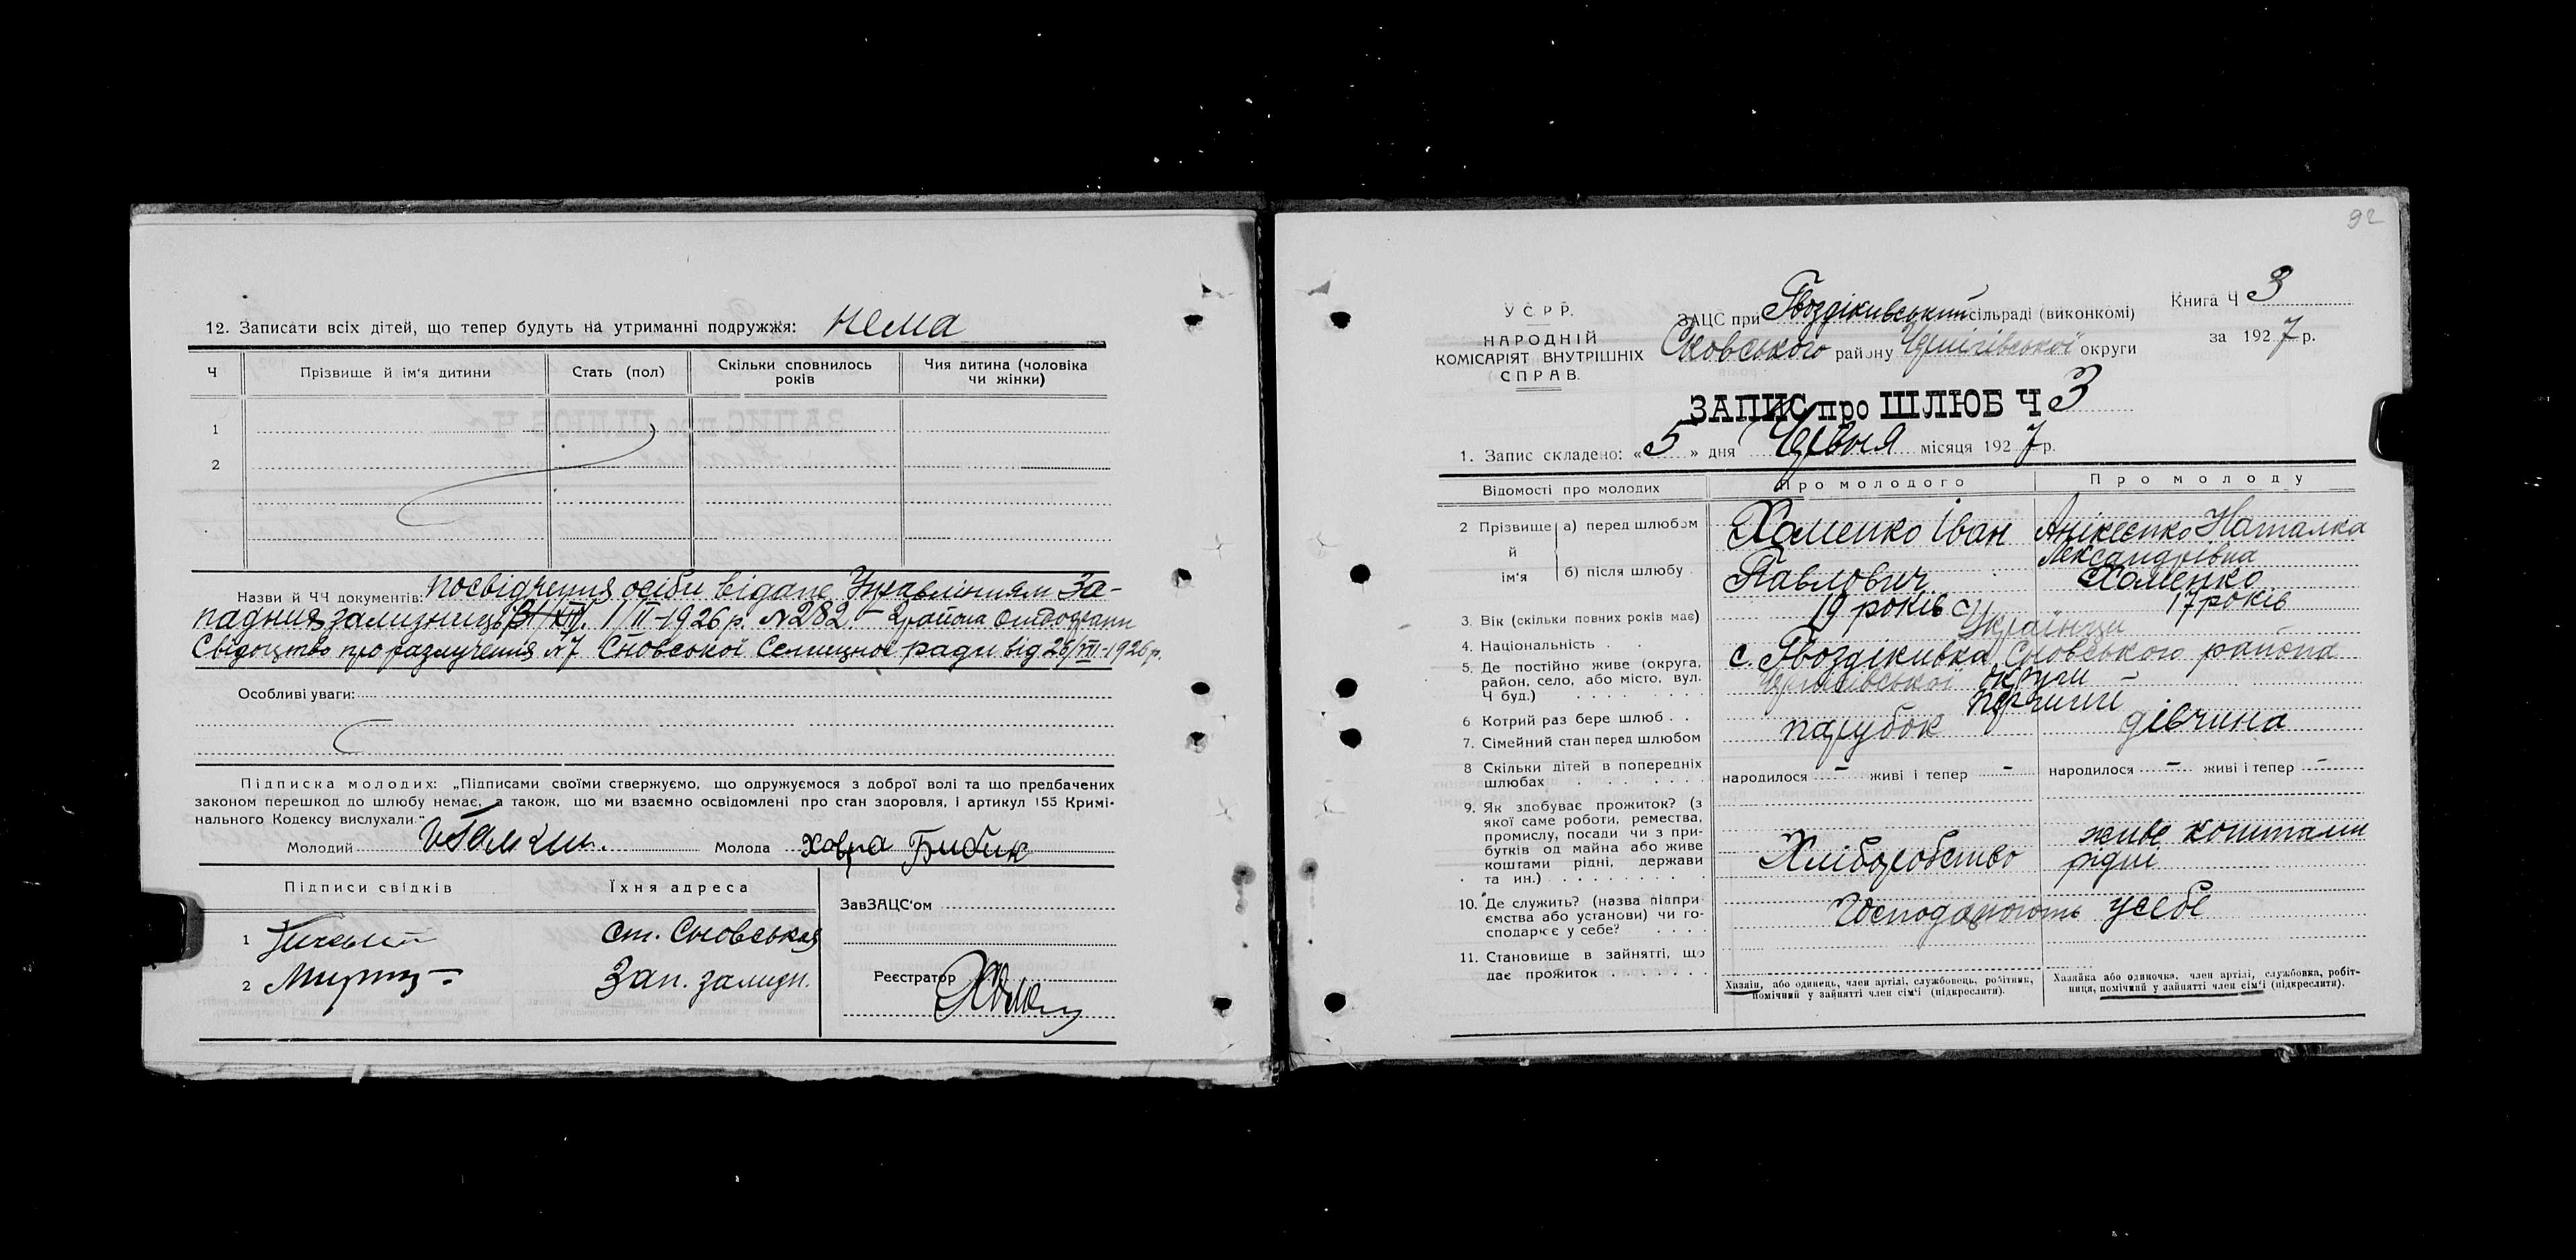 12. Записати всіх дітей, що тепер будуть на утриманні подружжя: нема
Ч Прізвище й ім'я дитини Стать (пол) Скільки сповнилось років Чия дитина (чоловіка чи жінки)
1
2
Назви й ЧЧ документів: посвідчення особи відане Управлінням За-
падния зализниці 1/II-1926 р. №282. – 2 района
Свідоцтво про разлучения №7 Сновської Селищної ради від 26/VII-1926 р.
Особливі уваги:
Підписка молодих: „Підписами своїми ствержуємо, що одружуємося з доброї волі та що предбачених
законом перешкод до шлюбу немає, а також, що ми взаємно освідомлені про стан здоровля, і артикул 155 Кримі-
нального Кодексу вислухали"
Молодий Молода Ховра Бибик
Підписи свідків Їхня адреса
ЗавЗАЦС'ом
1 ст. Сновськая
2 Зап. зализн.
Реєстратор
92
У С Р Р.
НАРОДНІЙ
КОМІСАРІЯТ ВНУТРІШНІХ
СПРАВ.
ЗАЦС при Гвоздіківський сільраді (виконкомі)
Сновського району Чернігівської округи
Книга Ч 3
за 1927 р.
ЗАПИС про ШЛЮБ Ч 3
1. Запис складено: «5» дня Червня місяця 1927 р.
Відомості про молодих Про молодого Про молоду
2 Прізвище й ім'я а) перед шлюбом Хоменко Іван Павлович Анікеєнко Наталка Лександрівна
б) після шлюбу Хоменко
3. Вік (скільки повних років має) 19 років 17 років
4. Національність . . Українци
5. Де постійно живе (округа, с. Гвоздіківка Сновського района
район, село, або місто, вул. Чернігівської округи
Ч буд.) . . . . . . . .
6 Котрий раз бере шлюб . . перший
7. Сімейний стан перед шлюбом парубок дівчина
8 Скільки дітей в попередніх
шлюбах . . . . . . . народилося – живі і тепер – народилося – живі і тепер –
9. Як здобуває прожиток? (з
якої саме роботи, ремества,
промислу, посади чи з при-
бутків од майна або живе
коштами рідні, держави
та ин.) . . . . . . . . .
Хліборобство живе коштами
рідні
10. Де служить? (назва підпри-
ємства або установи) чи го-
сподарює у себе? . . . .
Господарюють у себе
11. Становище в зайнятті, що
дає прожиток . . . . . . .
Хазяїн, або одинець, член артілі, службовець, робітник,
помічний у зайнятті член сім'ї (підкреслити).
Хазяйка або одиночка, член артілі, службовка, робіт-
ниця, помічний у зайнятті член сім'ї (підкреслити).